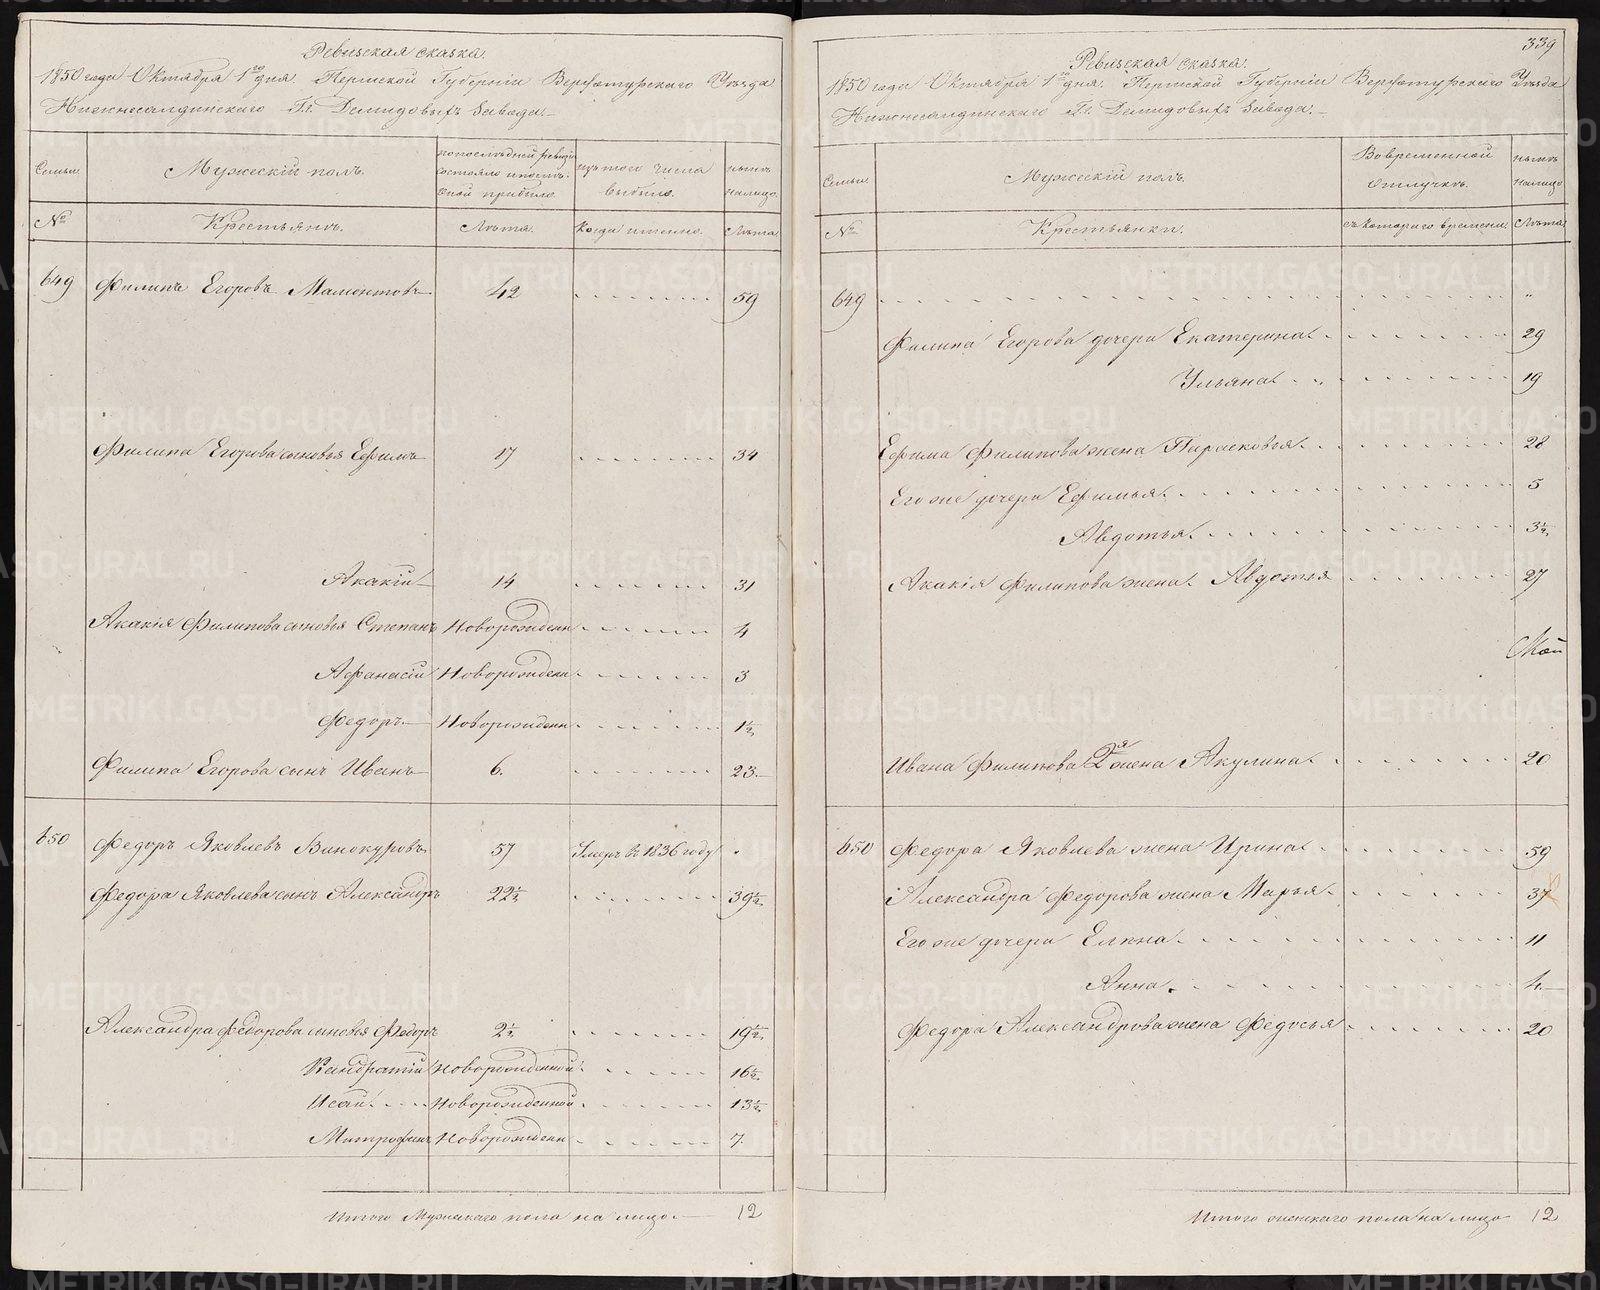 Ревизская сказка.
1850 года Октября 1го дня. Пермской Губерніи Верхотурскаго Уѣзда
Нижнесалдинскаго Гг. Демидовыхъ Завода.
Семьи. Мужескій полъ. по послѣдней ревизіи состояло и послѣ оной прибыло. изъ того числа выбыло. нынѣ налицо.
№ Крестьянъ. Лѣта. Когда именно. Лѣта.
649 Филипъ Егоровъ Мамонтовъ 42 59
Филипа Егорова сыновья Ефимъ 17 34
Акакій 14 31
Акакія Филипова сыновья Степанъ Новорожденн 4
Афанасій Новорожденн 3
Федоръ Новорожденн 1½
Филипа Егорова сынъ Иванъ 6. 23
650 Федоръ Яковлевъ Винокуровъ 57 Умеръ въ 1836 году
Федора Яковлева сынъ Александръ 22½ 39½
Александра Федорова сыновья Федоръ 2½ 19½
Кандратій Новорожденной 16½
Исай Новорожденной 13½
Митрофанъ Новорожденн 7.
Итого Мужескаго пола на лицо 12
339
Ревизская сказка.
1850 года Октября 1го дня. Пермской Губерніи Верхотурскаго Уѣзда
Нижнесалдинскаго Гг. Демидовыхъ Завода.
Семьи. Мужескій полъ. Во временной отлучкѣ. нынѣ налицо
№ Крестьянки. съ котораго времени. Лѣта.
649 "
Филипа Егорова дочери Екатерина 29
Ульяна 19
Ефима Филипова жена Парасковья 28
Его же дочери Ефимья 5
Авдотья 3½
Акакія Филипова жена Авдотья 27
Ивана Филипова 2я жена Акулина 20
650 Федора Яковлева жена Ирина 59
Александра Федорова жена Марья 37
Его же дочери Елена 11
Анна 4
Федора Александрова жена Федосья 20
Итого женскаго пола на лицо 12
METRIKI.GASO-URAL.RU